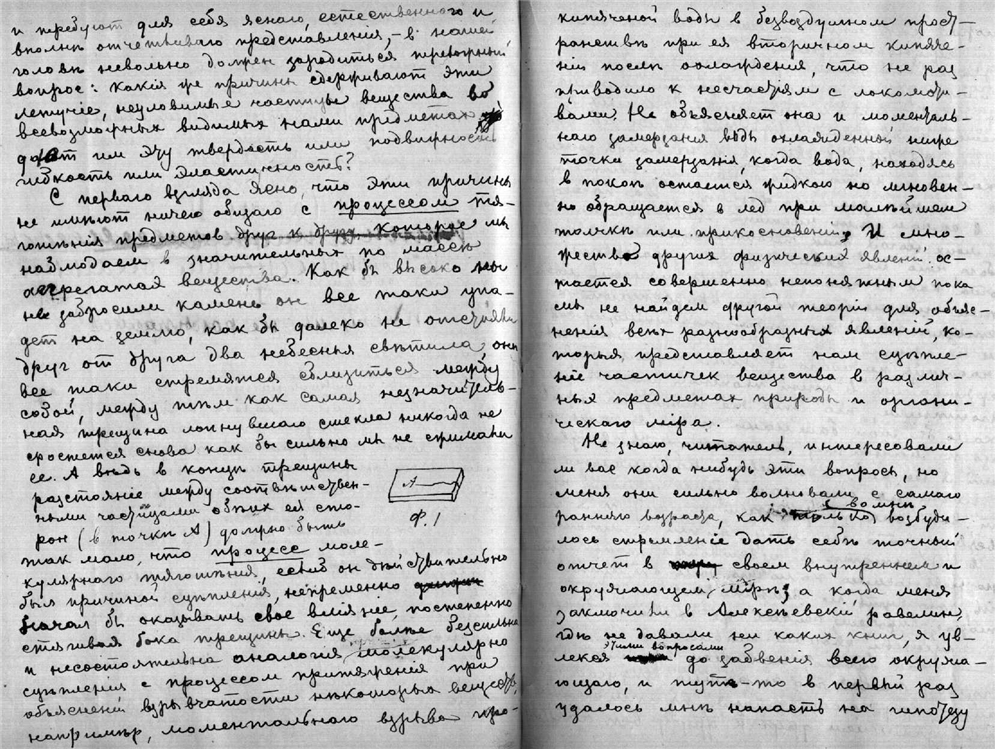 и требуют для себя яснаго, естественного и
вполнѣ отчетливаго представленія, – в нашей
головѣ невольно должен зародиться тревожный
вопрос: какія же причины сдерживают эти
летучіе, неуловимые частицы вещества во
всевозможных видимых нами предметах
дают им эту твердость или подвижность
гибкость или эластичность?
С перваго взгляда ясно, что эти причины
не имѣют ничего общаго с процессом тя-
готѣнія предметов друг к другу, которое мы
наблюдаем в значительных по массѣ
аггрегатах вещества. Как бы высоко мы
не забросили камень он все таки упа-
дет на землю, как бы далеко не отстояли
друг от друга два небесныя свѣтила они
все таки стремятся сблизиться между
собой, между тѣм как самая незначитель-
ная трещина лопнувшаго стекла никогда не
сростется снова как бы сильно мы не сжимали
ее. А вѣдь в концѣ трещины
разстояніе между соотвѣтствен-
ными частицами обѣих ея сто-
рон (в точкѣ А) должно быть
А
Ф. 1
так мало, что процесс моле-
кулярнаго тяготѣнія, если он дѣйствительно
был причиной сцѣпленія, непременно
начал бы оказывать свое вліяніе, постепенно
стягивая бока трещины. Еще болѣе безсильна
и несостоятельна аналогія молекулярно
сцѣпленія с процессом притяженія при
объясненіи взрывчатости нѣкоторых веществ,
напримѣр, моментального взрыва про-
кипяченой воды в безвоздушном прост-
ранствѣ при ея вторичном кипяче-
ніи послѣ охлажденія, что не раз
приводило к несчастіям с локомоти-
вами. Не объясняет она и моменталь-
наго замерзанія воды охлажденной ниже
точки замерзанія, когда вода, находясь
в покоѣ остается жидкою но мгновен-
но обращается в лед при малѣйшем
толчкѣ или прикосновеніи, И мно-
жество других физических явленій ос-
тается совершенно непонятным пока
мы не найдем другой теоріи для объяс-
ненія всѣх разнообразных явленій, ко-
торыя представляет нам сцѣпле-
ніе частичек вещества в различ-
ных предметах природы и органи-
ческаго міра.
Не знаю, читатель, интересовали
ли вас когда нибудь эти вопросы, но
меня они сильно волновали с самаго
ранняго возраста, как только возбуди-
лось стремленіе дать себѣ точный
отчет в своем внутреннем и
окружающем мірѣ, а когда меня
заключили в Алексѣевскій равелин,
гдѣ не давали нам каких книг, я ув-
лекся этими вопросами до забвенія всего окружа-
ющаго, и тут-то в первый раз
удалось мнѣ напасть на гипотезу